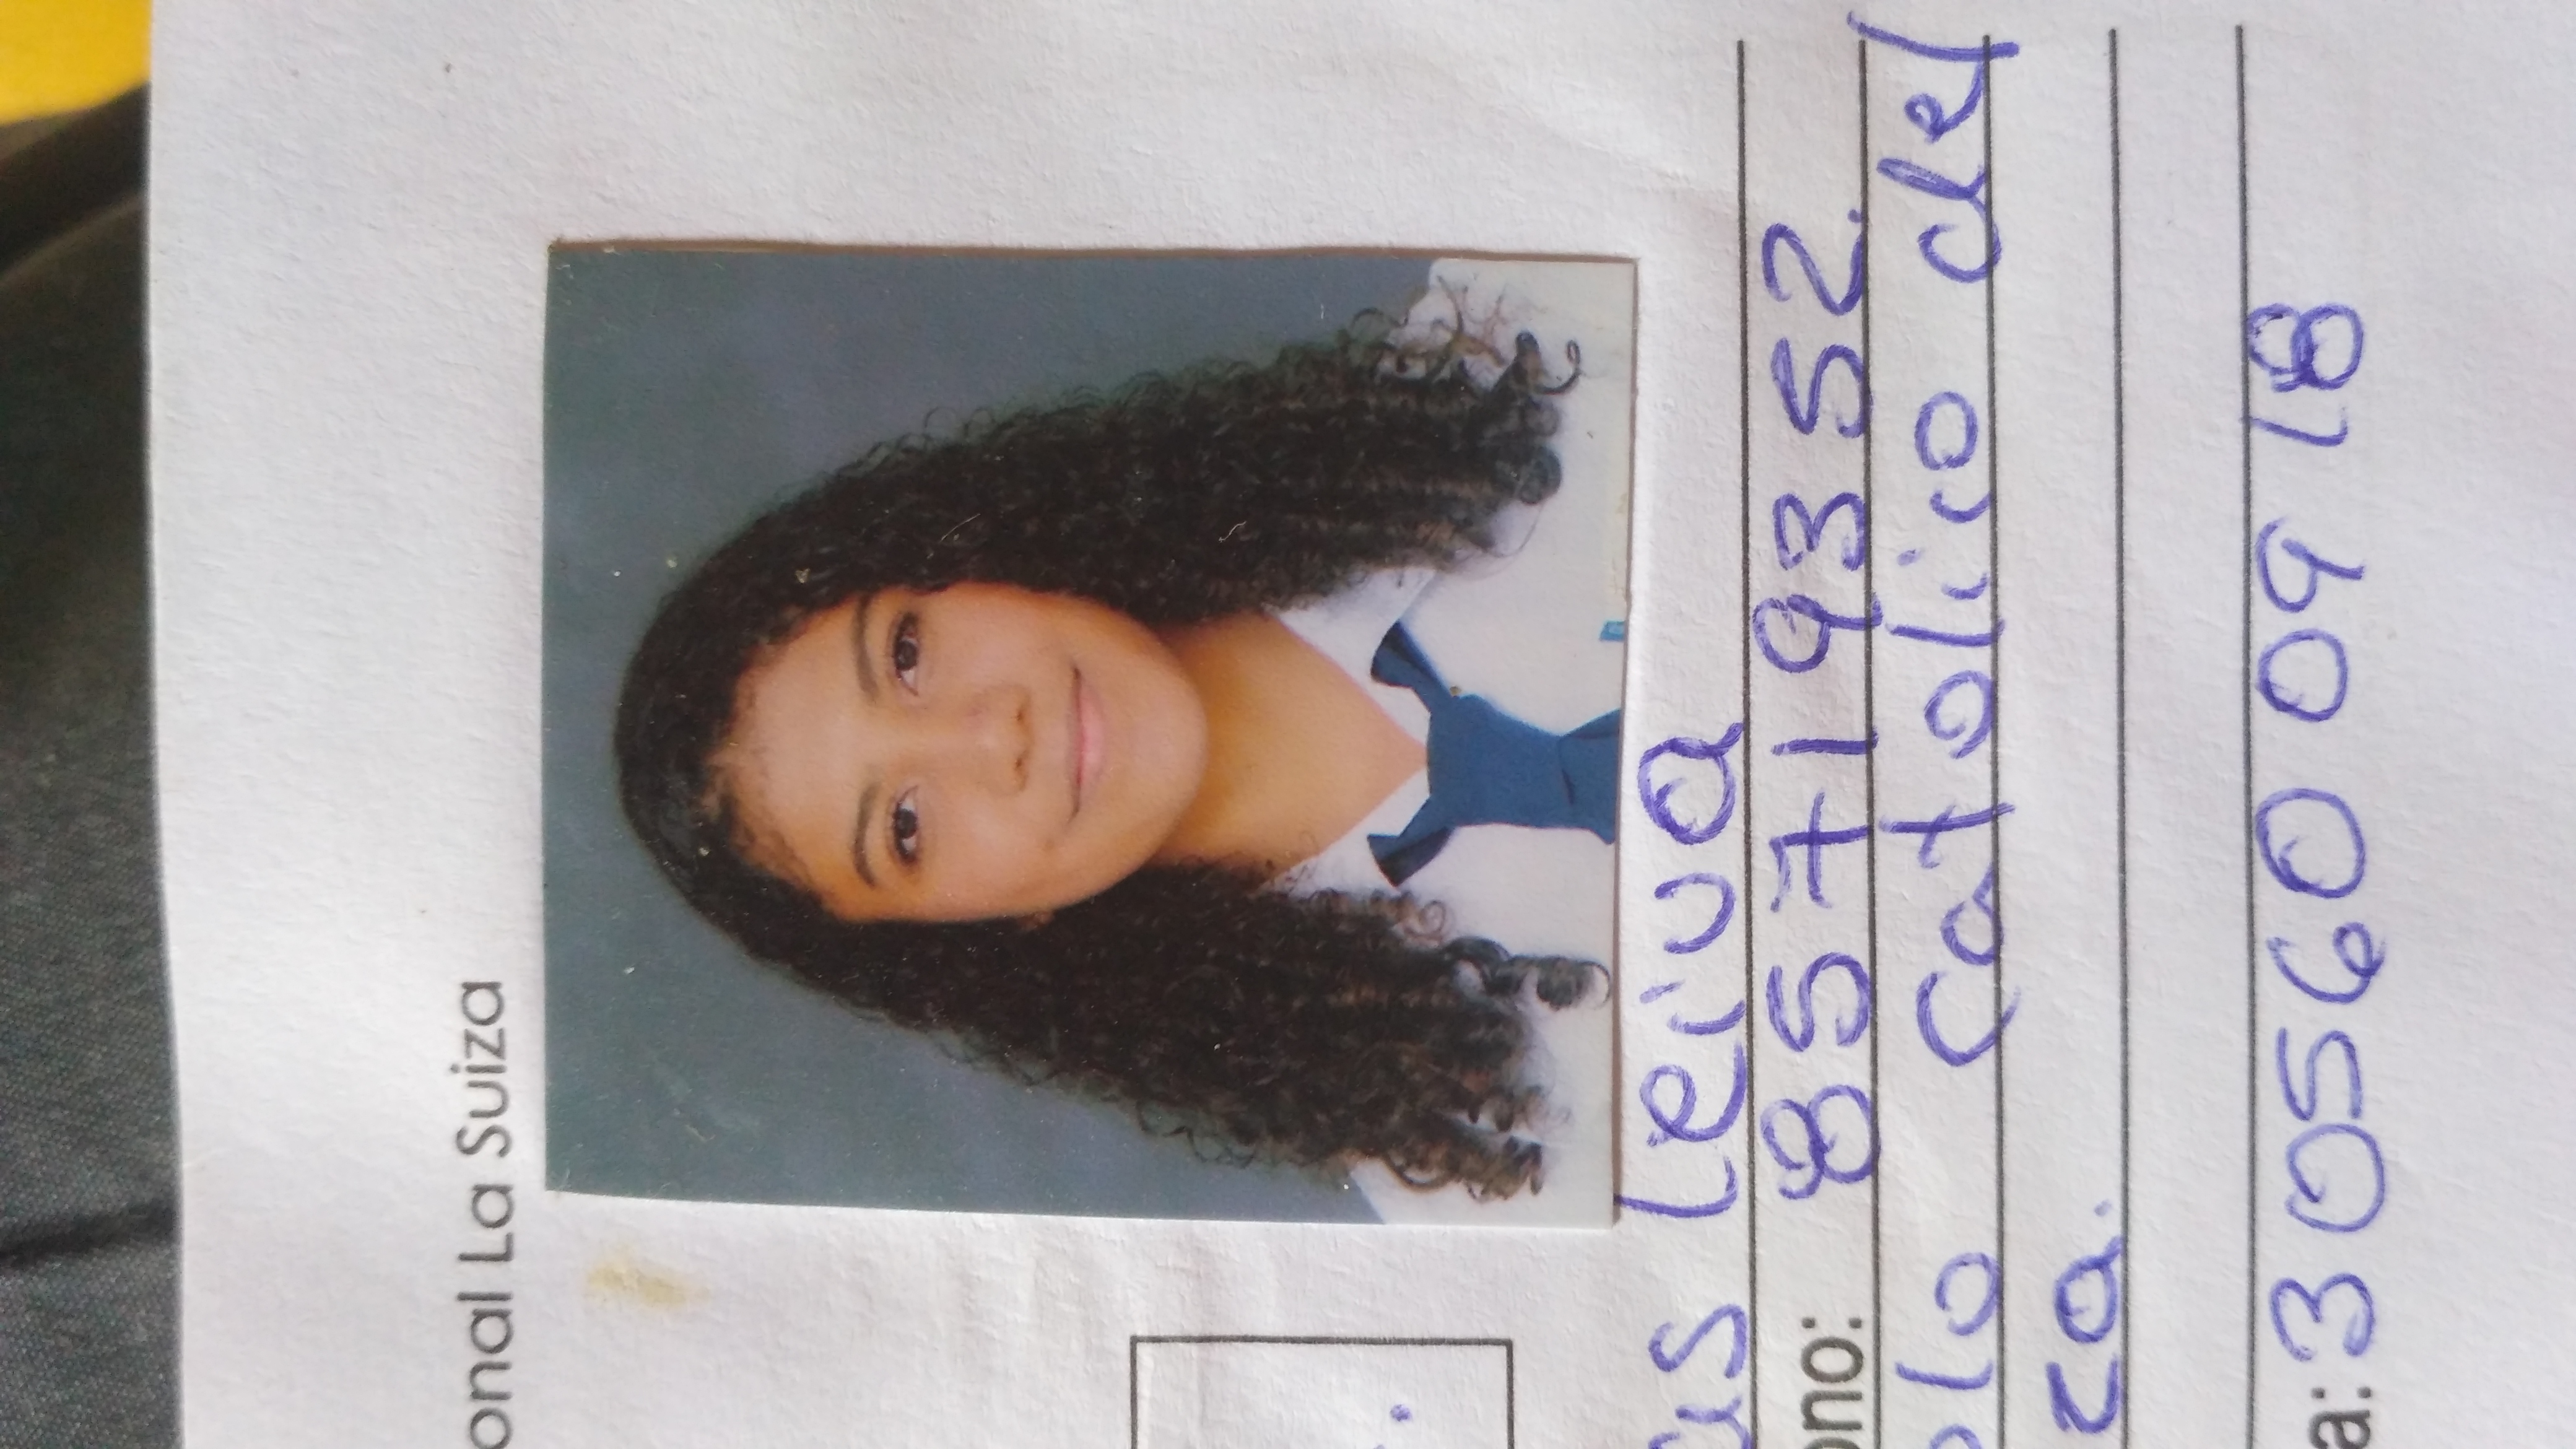 onal La Suiza
us Leiva
ono: 85719352.
olo catolico del
ca.
a: 3 0560 0918